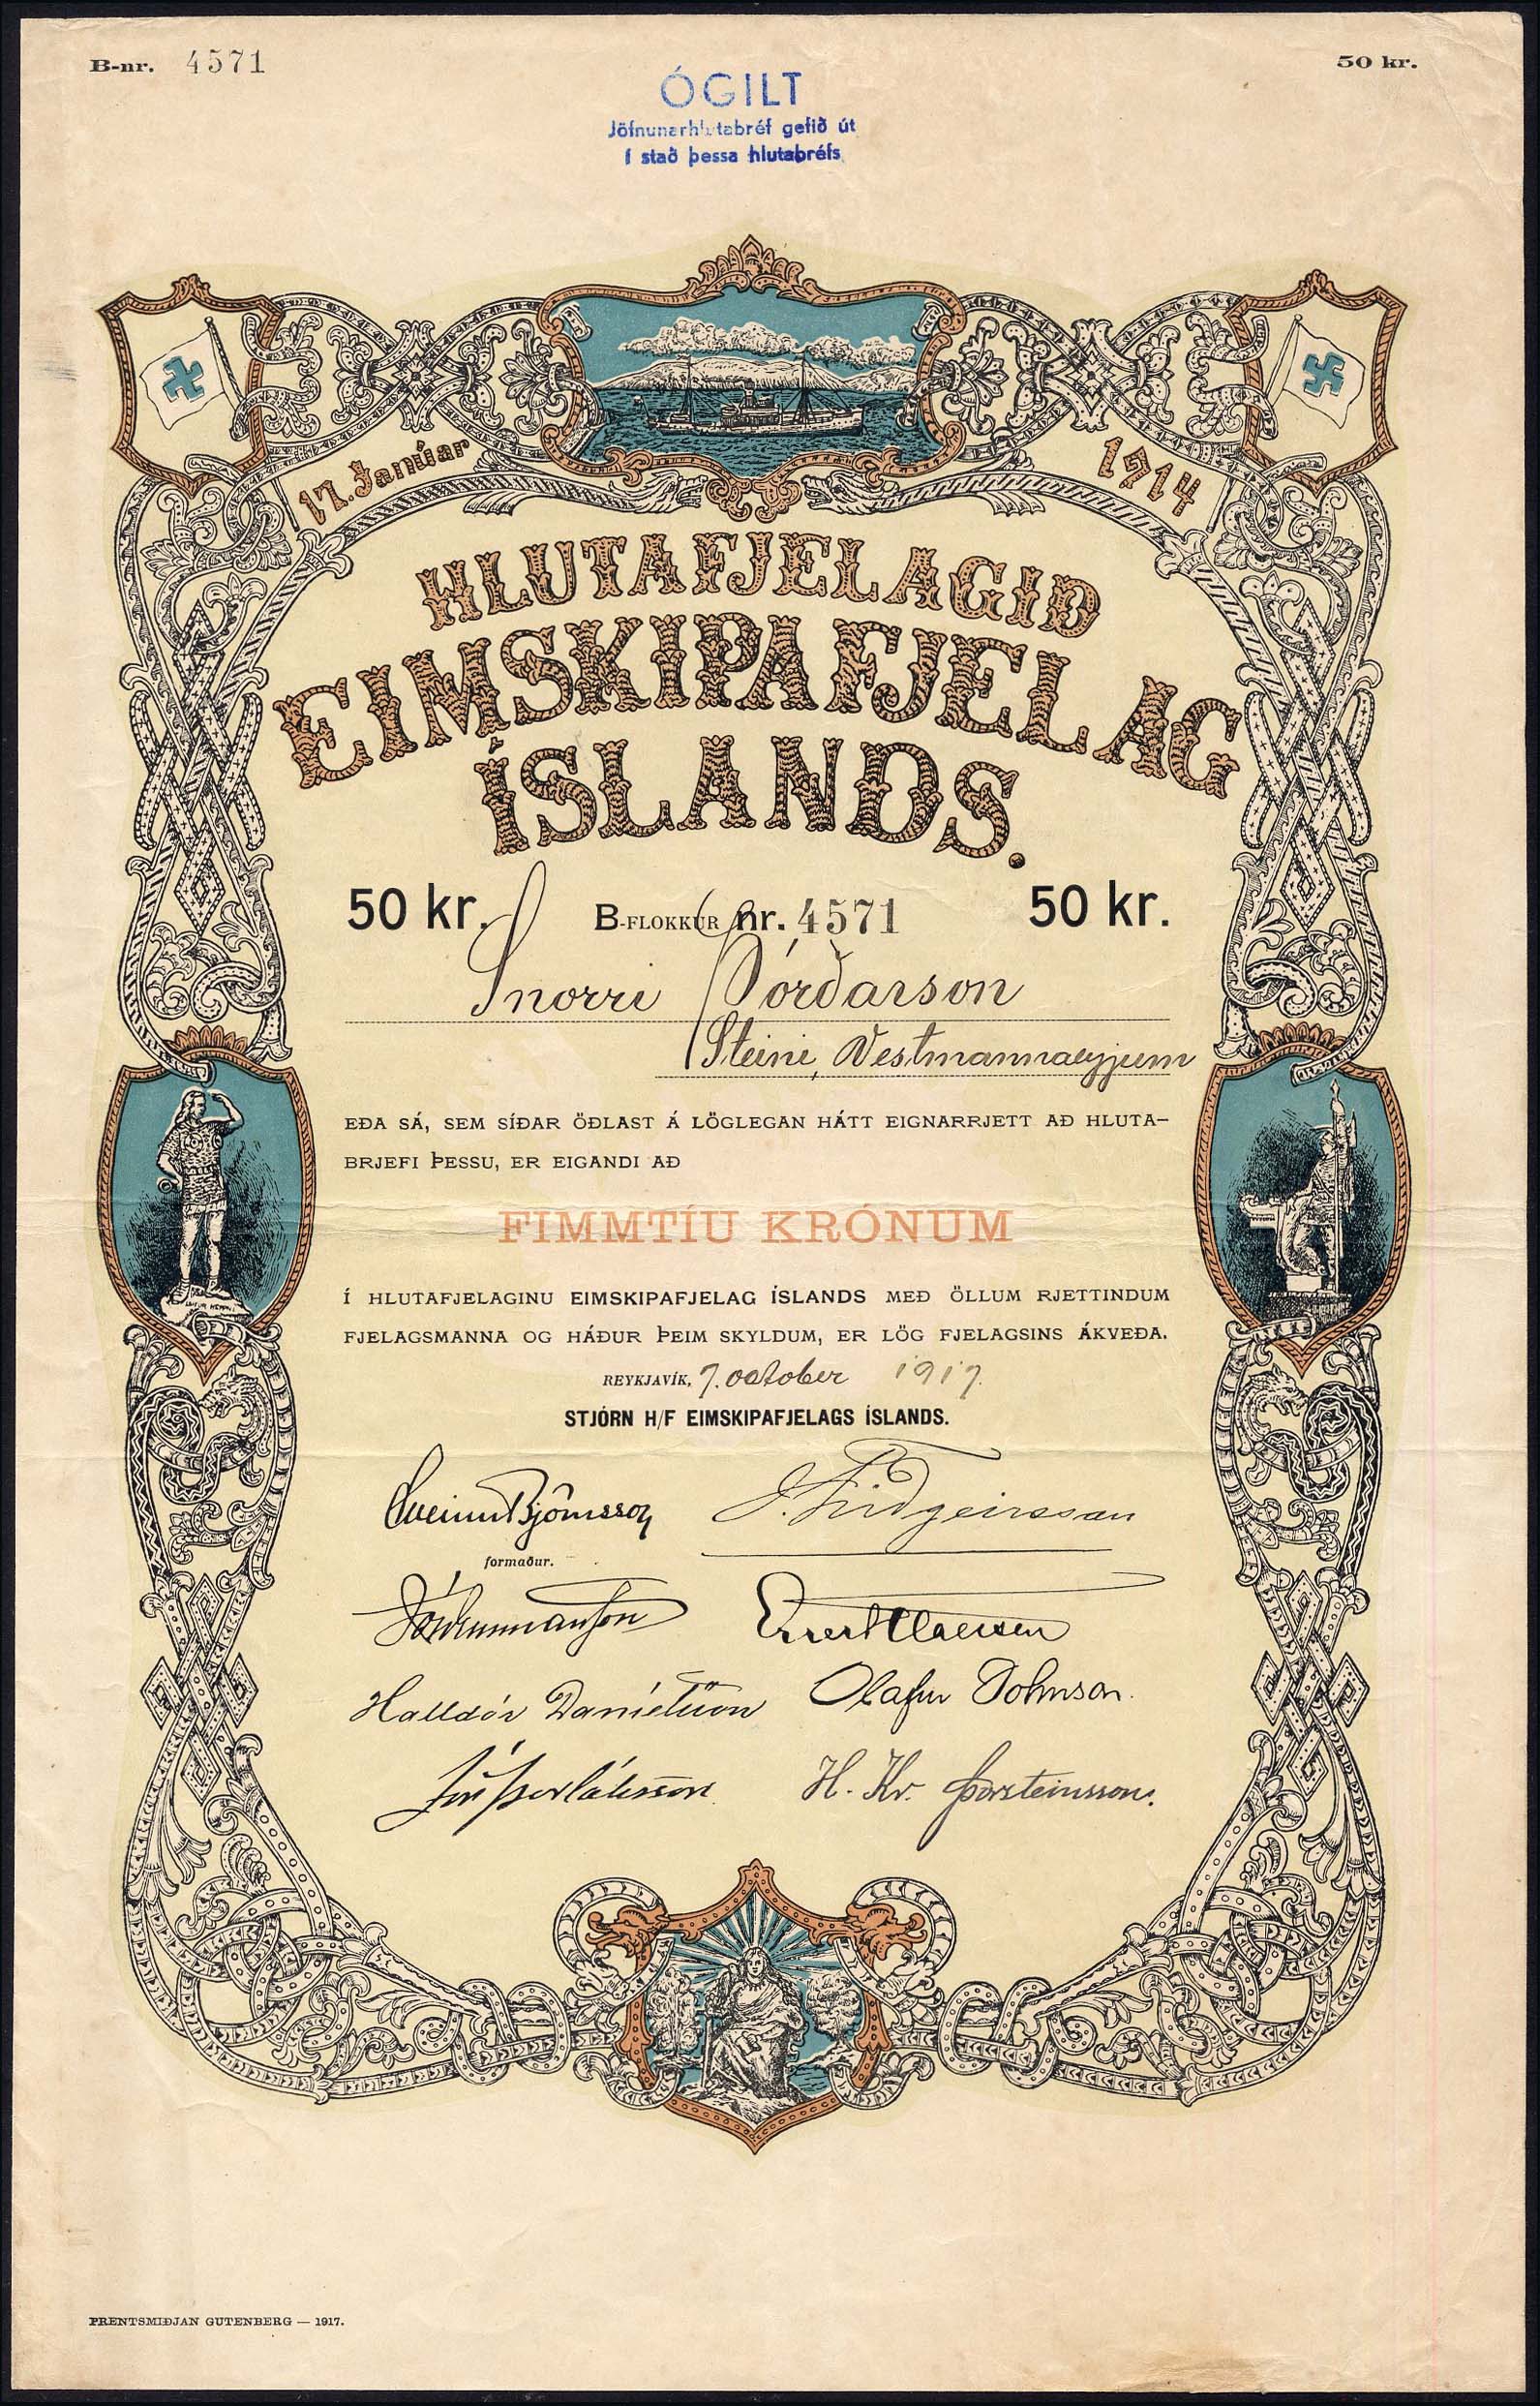 B-nr. 4571
50 kr.
ÓGILT
Jöfnunarhlutabréf gefið út
í stað þessa hlutabréfs
17. Janúar 1914
HLUTAFJELAGIÐ
EIMSKIPAFJELAG
ÍSLANDS.
50 kr. B-FLOKKUR nr. 4571 50 kr.
Snorri Þórðarson
Steini, Vestmannaeyjum
EÐA SÁ, SEM SÍÐAR ÖÐLAST Á LÖGLEGAN HÁTT EIGNARRJETT AÐ HLUTA-
BRJEFI ÞESSU, ER EIGANDI AÐ
FIMMTÍU KRÓNUM
Í HLUTAFJELAGINU EIMSKIPAFJELAG ÍSLANDS MEÐ ÖLLUM RJETTINDUM
FJELAGSMANNA OG HÁÐUR ÞEIM SKYLDUM, ER LÖG FJELAGSINS ÁKVEÐA.
REYKJAVÍK, 7. october 1917.
STJÓRN H/F EIMSKIPAFJELAGS ÍSLANDS.
Sveinn Björnsson J. Friðgeirsson
formaður.
Eggert Claessen
Halldór Daníelsson Olafur Johnson.
Jón Þorláksson H. Kr. Þorsteinsson.
PRENTSMIÐJAN GUTENBERG — 1917.